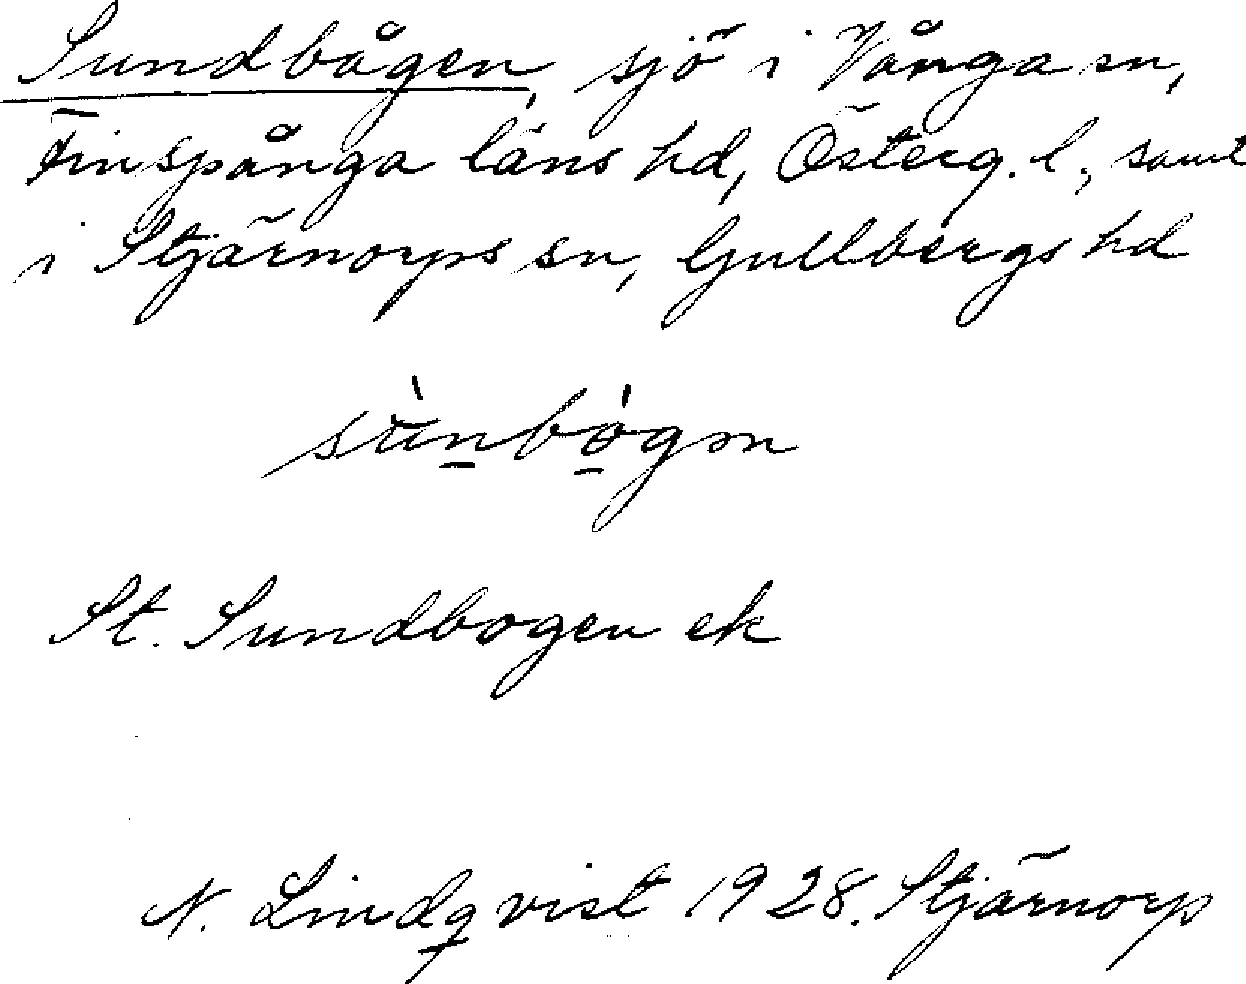 Sundbågen, sjö i Vånga sn,
Finspånga läns hd, Österg. l., samt
i Stjärnorps sn, Gullbergs hd
St. Sundbogen ek
N. Lindqvist 1928. Stjärnorp